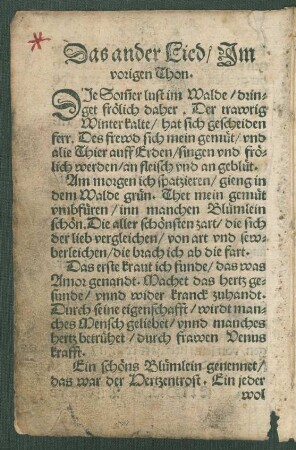 Das ander Lied / Im
vorigen Thon.
DJe Som̃er lust im Walde / drin-
get frölich daher / Der trawrig
Winter kalte / hat sich gescheiden
ferr. Des frewd sich mein gemüt / vnd
alle Thier auff Erden / singen vnd frö-
lich werden / an fleisch vnd an geblüt.
Am morgen ich spatzieren / gieng in
dem Walde grün. Thet mein gemüt
vmbfüren / inn manchen Blümlein
schön. Die aller schönsten zart / die sich
der lieb vergleichen / von art vnd sew-
berleichen / die brach ich ab die fart.
Das erste kraut ich funde / das was
Amor genandt. Machet das hertz ge-
sunde / vnnd wider kranck zuhandt.
Durch seine eigenschafft / wirdt man-
ches Mensch geliebet / vnnd manches
hertz betrübet / durch frawen Venus
krafft.
Ein schöns Blümlein genennet /
das war der Hertzentrost. Ein jeder
wol